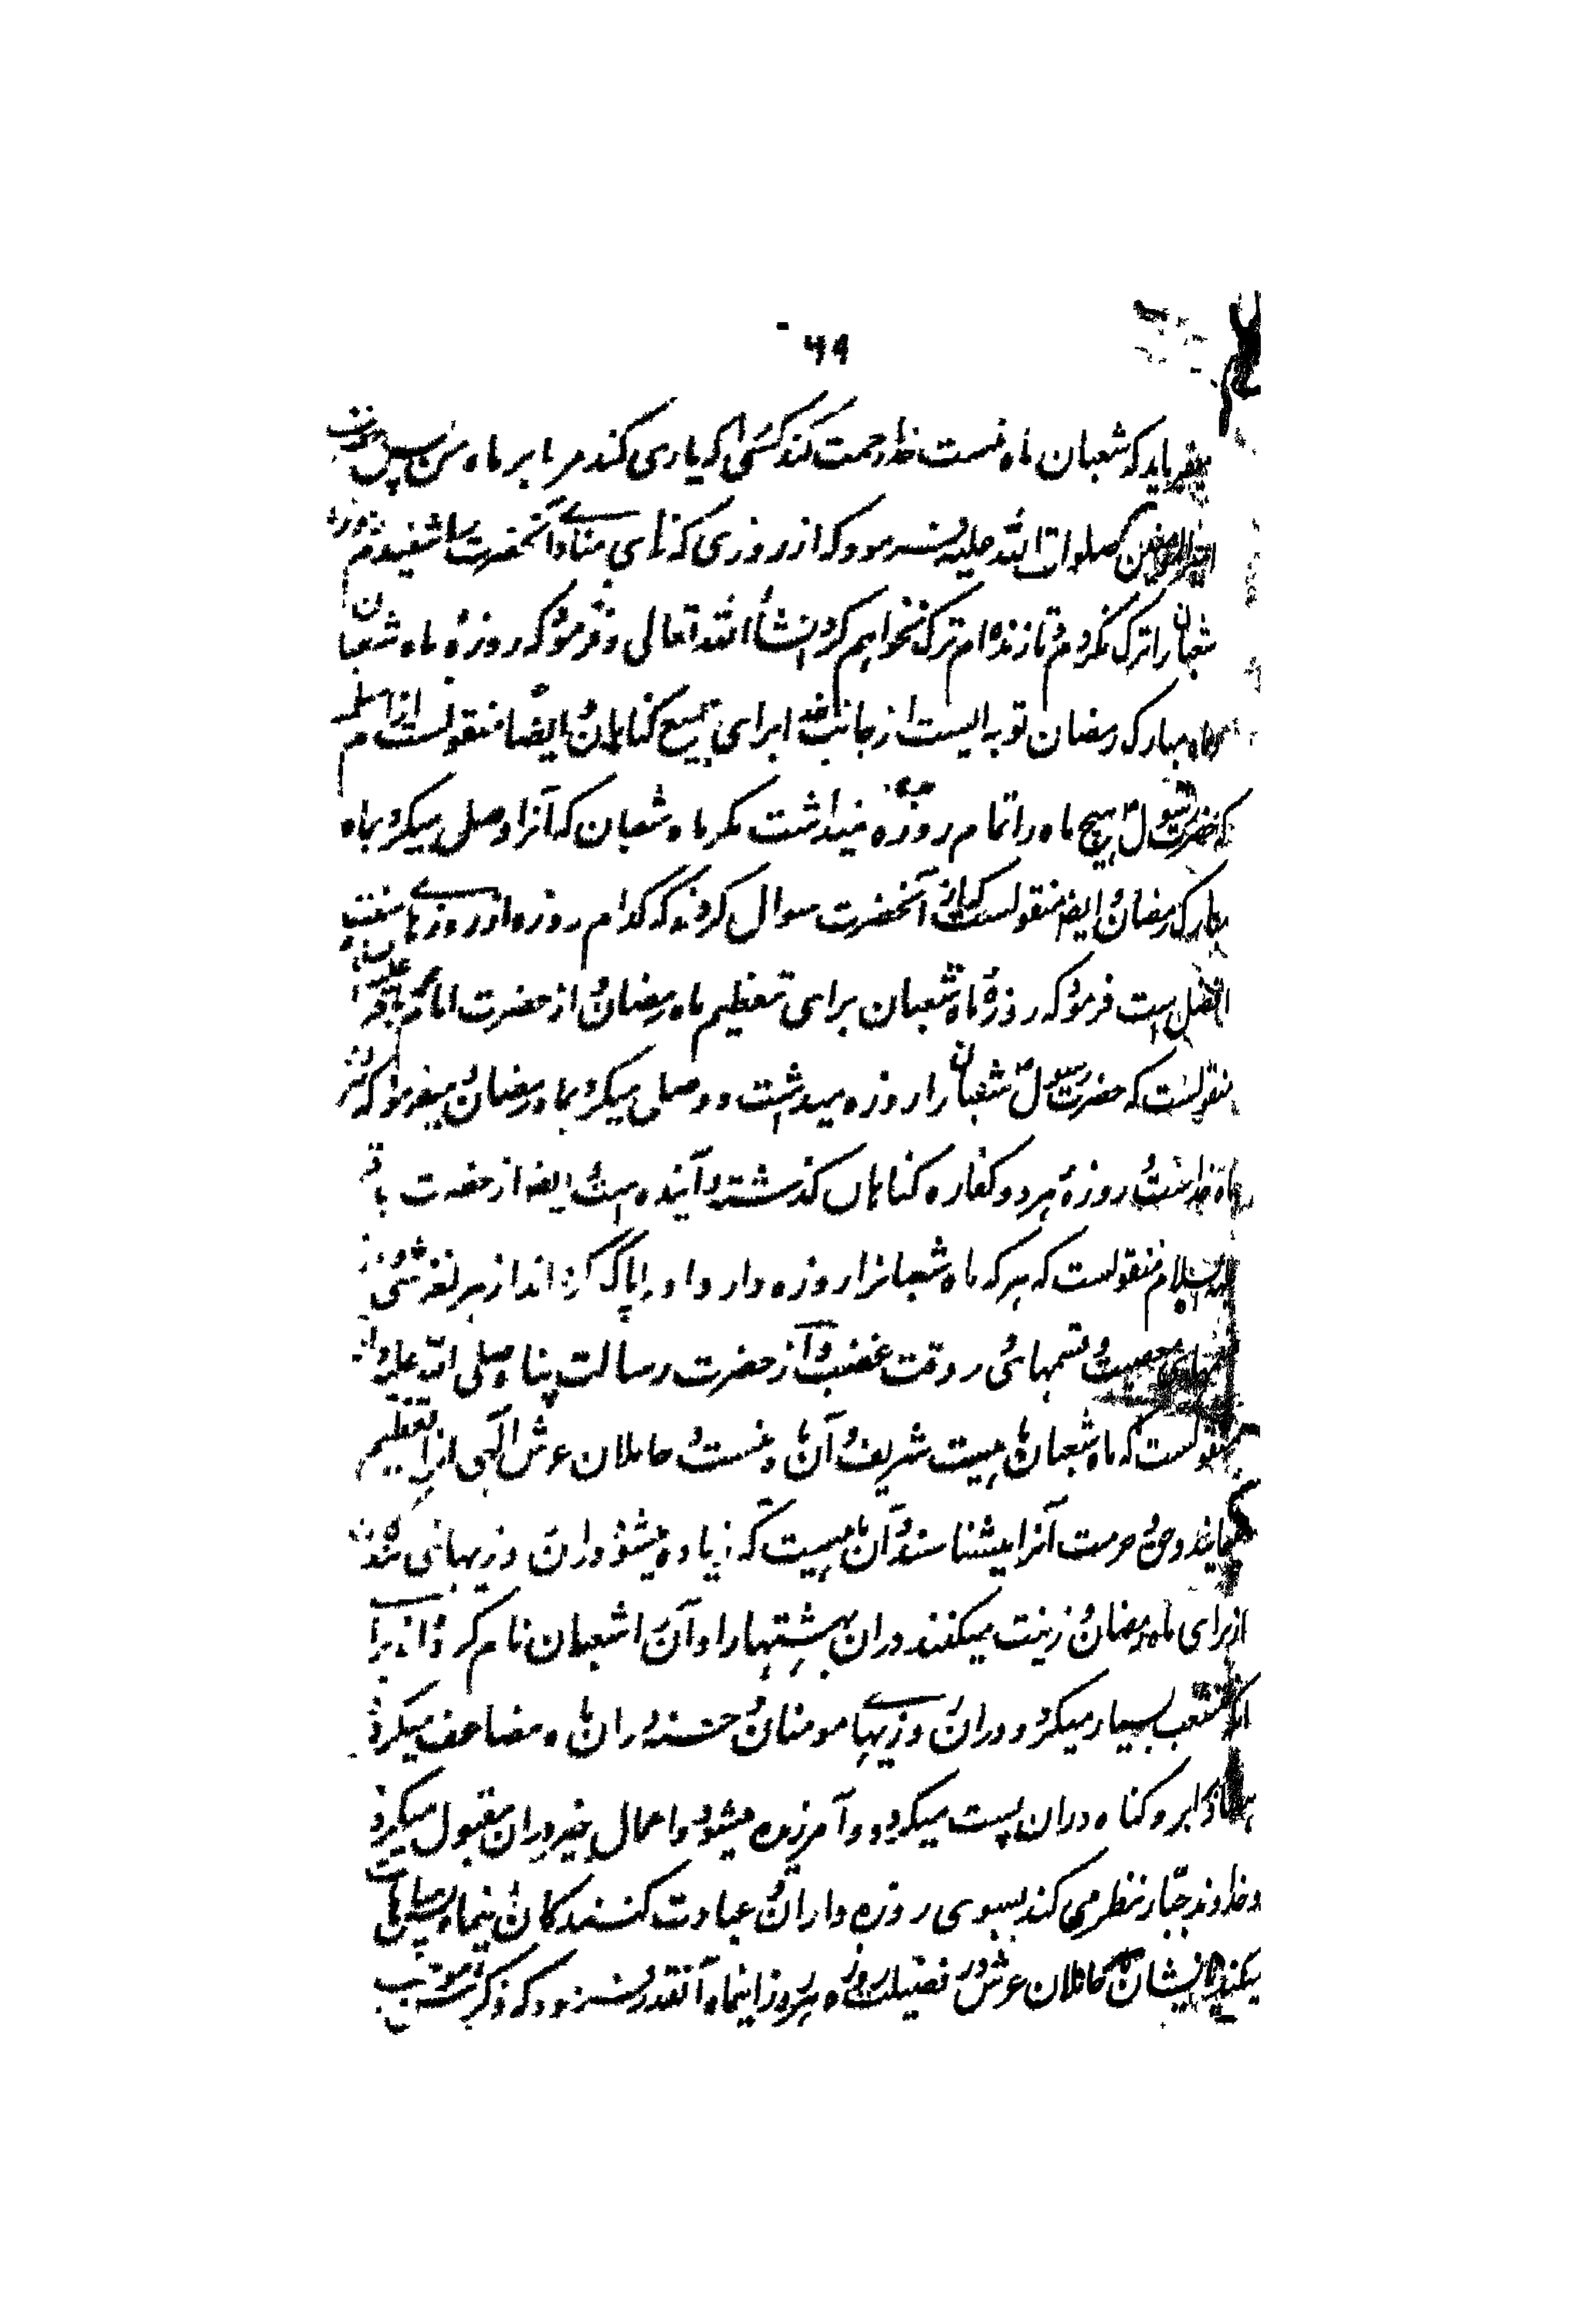 ۶۹
میفرماید که شعبان ماه منست خدا رحمت کند کسی را که یاری کند مرا بر ماه من پس حضرت
امیرالمومنین صلوات الله علیه فرمود که از روزی که ندای منادی آنحضرت را شنیدم روزه
شعبان را ترک نکردم و تا زنده ام ترک نخواهم کرد انشأ الله تعالی و فرمود که روزۀ ماه شعبان
و ماه مبارک رمضان توبه ایست از جانب خدا برای جمیع گناهان و ایضًا منقولست از ام سلمه
که حضرت رسول هیچ ماه را تمام روزه نمیداشت مگر ماه شعبان که آنرا وصل میکرد بماه
مبارک رمضان و ایضا منقولست که از آنحضرت سوال کردند که کدام روزه از روزهای سنت
افضل است فرمود که روزۀ ماه شعبان برای تعظیم ماه رمضان و از حضرت امام محمد باقر
منقولست که حضرت رسول شعبان را روزه میداشت و وصل میکرد بماه رمضان و میفرمود که
ماه خداست و روزۀ هر دو کفاره گناهان گذشته و آینده است و ایضا از حضرت باقر
علیه السلام منقولست که هر که ماه شعبانرا روزه دارد او را پاک گرداند از هر لغزشی و
معصیت و قسمهای در وقت غضب و از حضرت رسالت پناه صلی الله علیه و آله
منقولست که ماه شعبان ماهیست شریف و آن ماه منست و حاملان عرش الهی آنرا تعظیم
مینمایند و حق حرمت آنرا میشناسند و آن ماهیست که زیاده میشود در آن روزیهای بندگان
از برای ماه رمضان و زینت میکنند در ان بهشتها را و آن را شعبان نام کرده اند برای
منشعب بسیار میگردد در ان روزیهای مومنان و حسنه در ان ماه مضاعف میگردد
برابر و گناه در ان پست میگردد و آمرزیده میشود و اعمال خیر در ان مقبول میگردد
و خداوند جبّار نظر می کند بسوی روزه داران و عبادت کنندگان اینماه پس مباهات
میکند بایشان با حاملان عرش و در فضیلت روزه هر روز اینماه آنقدر فرمود که ذکرش موجب